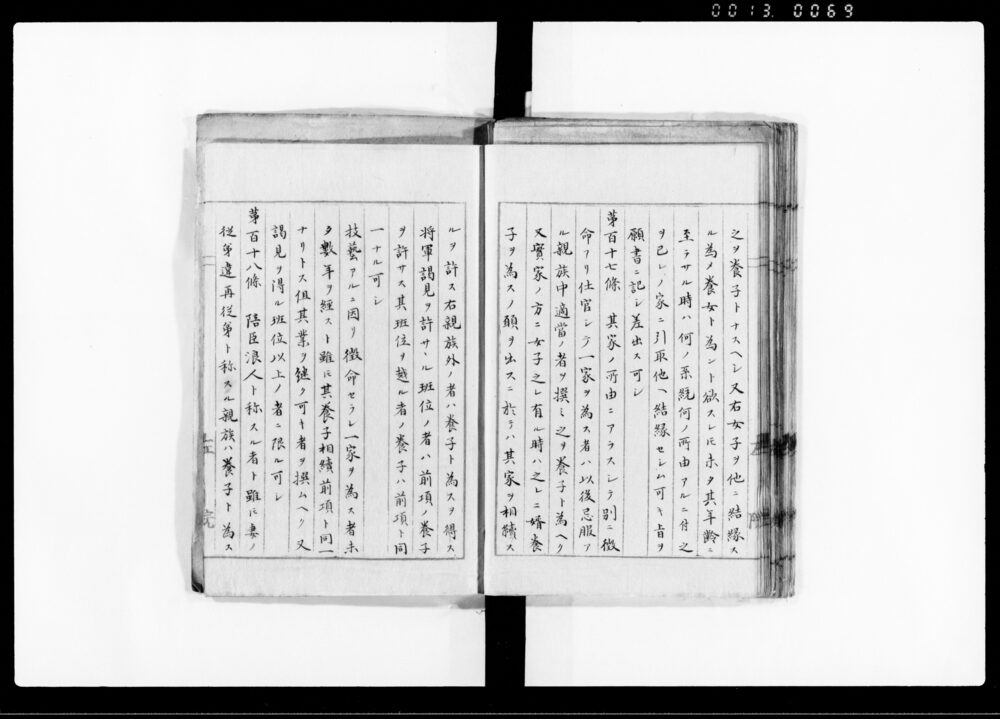 0013 0069
之ヲ養子トナスヘシ又右女子ヲ他ニ結縁ス
ル為メ養女ト為ント欲スレ𪜈未タ其年齢ニ
至ラサル時ハ何ノ系統何ノ所由アルニ付之
ヲ己レノ家ニ引取他ヘ結縁セシム可キ旨ヲ
願書ニ記シ差出ス可シ
第百十七條 其家ノ所由ニアラスシテ別ニ徴
命アリ仕官シテ一家ヲ為ス者ハ以後忌服ア
ル親族中適當ノ者ヲ撰ミ之ヲ養子ト為ヘク
又實家ノ方ニ女子之レ有ル時ハ之レニ婿養
子ヲ為スノ願ヲ出スニ於テハ其家ヲ相續ス
ルヲ許ス右親族外ノ者ハ養子ト為スヲ得ス
将軍謁見ヲ許サヽル班位ノ者ハ前項ノ養子
ヲ許サス其班位ヲ越ル者ノ養子ハ前項ト同
一ナル可シ
技藝アルニ因リ徴命セラレ一家ヲ為ス者未
タ數年ヲ経スト雖𪜈其養子相續前項ト同一
ナリトス但其業ヲ継ク可キ者ヲ撰ムヘク又
謁見ヲ得ル班位以上ノ者ニ限ル可シ
第百十八條 陪臣浪人ト称スル者ト雖𪜈妻ノ
従弟違再従弟ト称スル親族ハ養子ト為ス
院